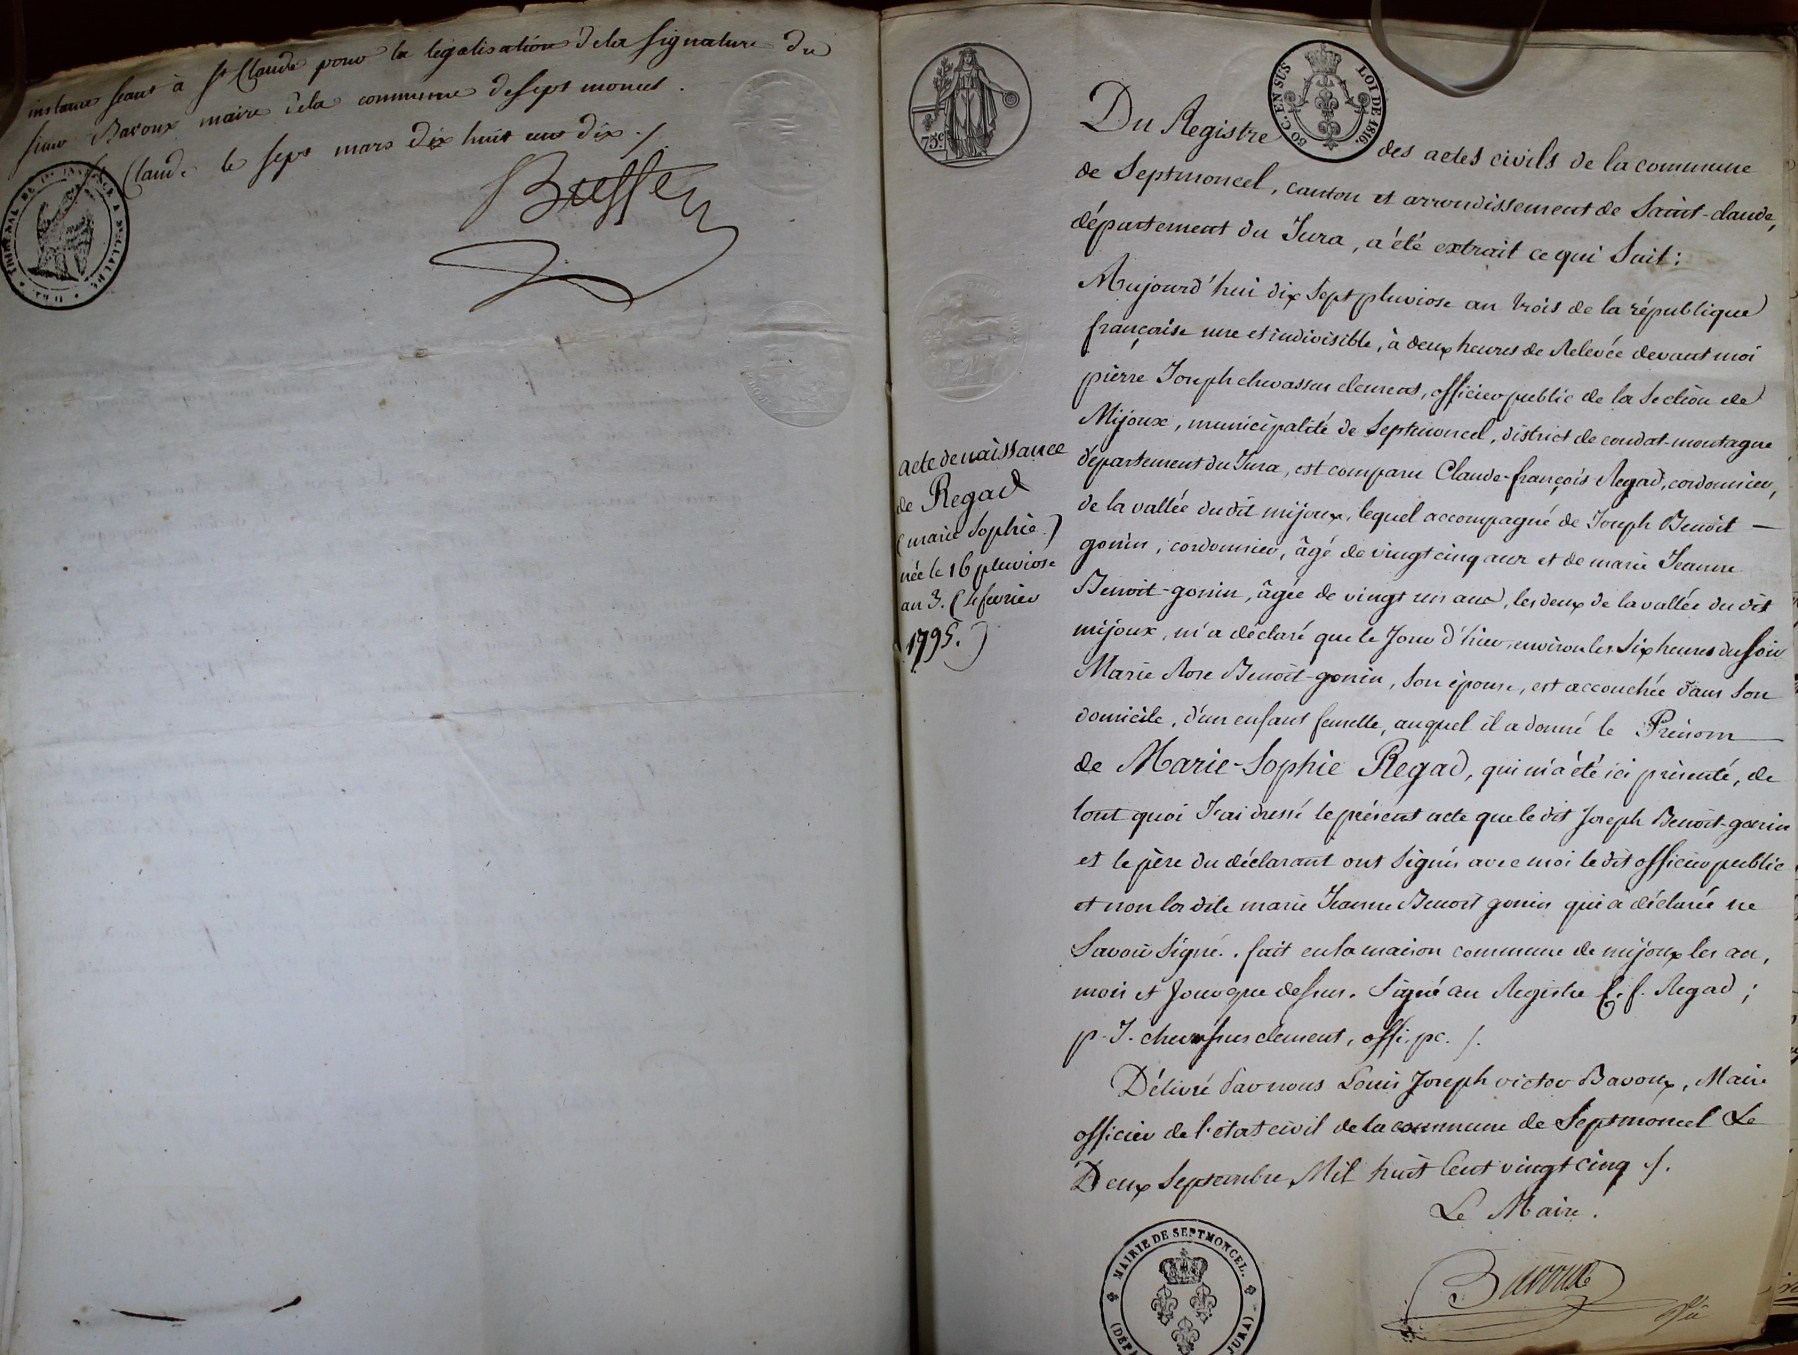 instance séant à St Claude pour la légalisation de la signature du
sieur Bavoux maire de la commune de sept moncel.
St Claude le sept mars dix huit cent dix ./.
TRIBUNAL DE 1RE INSTANCE
75 c
50 C. EN SUS
LOI DE 1816.
Du Registre des actes civils de la commune
de Septmoncel, canton et arrondissement de Saint-claude,
département du Jura, a été extrait ce qui Suit :
Aujourd'hui dix Sept pluviose an trois de la république
française une et indivisible, à deux heures de Relevée devant moi
pierre Joseph chevassus clement, officier public de la Section de
Mijoux, municipalité de Septmoncel, district de condat-montagne
département du Jura, est comparu Claude-françois Regad, cordonnier,
de la vallée du dit mijoux, lequel accompagné de Joseph Benoit -
gonin, cordonnier, âgé de vingt cinq ans et de marie Jeanne
Benoit-gonin, âgée de vingt un ans, les deux de la vallée du dit
mijoux, m'a déclaré que le Jour d'hier, environ les Six heures du soir
Marie Rose Benoit-gonin, Son épouse, est accouchée dans Son
domicile, d'un enfant femelle, auquel il a donné le Prénom
de Marie-Sophie Regad, qui m'a été ici présenté, de
tout quoi J'ai dressé le présent acte que le dit Joseph Benoit-gonin
et le père du déclarant ont Signés avec moi le dit officier public
et non la dite marie Jeanne Benoit gonin qui a déclarée ne
Savoir Signé. fait en la maison commune de mijoux les an,
mois et Jour que dessus. Signé au Registre C. f. Regad ;
p. J. chevassus clement, offi. pc. /.
Délivré par nous Louis Joseph victor Bavoux, Maire
officier de l'état civil de la commune de Septmoncel Le
Deux Septembre Mil huit Cent vingt cinq ./.
Le Maire.
Bavoux
acte de naissance
de Regad
(marie Sophie)
née le 16 pluviose
an 3. (4 fevrier
1795.)
MAIRIE DE SEPTMONCEL.
JURA)